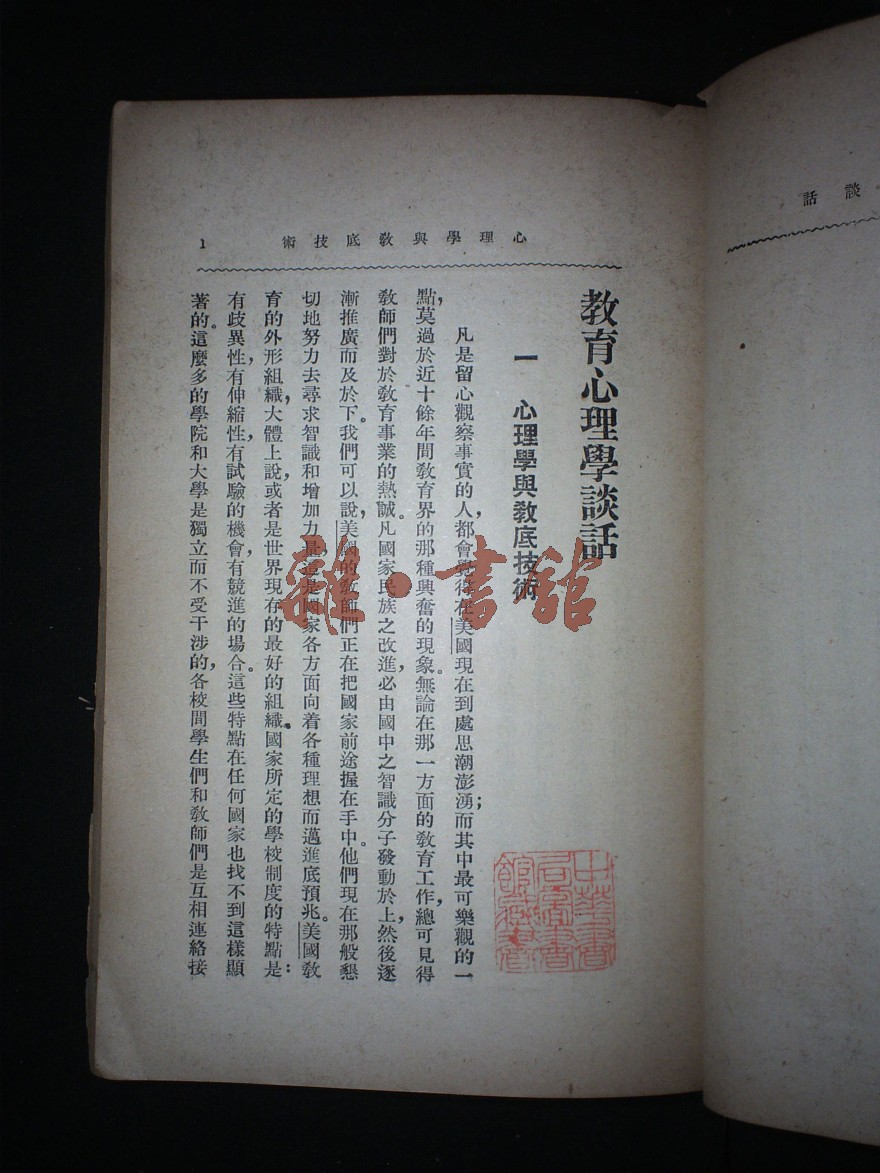 談話
心理學與教底技術 1
教育心理學談話
一 心理學與教底技術
凡是留心觀察事實的人,都會覺得在美國現在到處思潮澎湧;而其中最可樂觀的一
點,莫過於近十餘年間教育界的那種興奮的現象。無論在那一方面的教育工作,總可見得
教師們對於教育事業的熱誠。凡國家民族之改進,必由國中之智識分子發動於上,然後逐
漸推廣而及於下。我們可以說,美國的教師們正在把國家前途握在手中。他們現在那般懇
切地努力去尋求智識和增加力量,這是國家各方面向着各種理想而邁進底預兆。美國教
育的外形組織,大體上說,或者是世界現存的最好的組織。國家所定的學校制度的特點是:
有歧異性,有伸縮性,有試驗的機會,有競進的場合。這些特點在任何國家也找不到這樣顯
著的。這麼多的學院和大學是獨立而不受干涉的,各校間學生們和教師們是互相連絡接
雜·書館
中華書
局圖書
館藏書